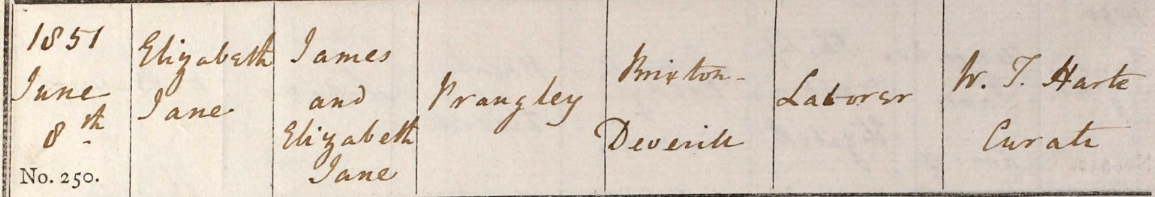 1851
June
8th
No. 250.
Elizabeth
Jane
James
and
Elizabeth
Jane
Prangley
Brixton-
Deverill
Laborer
W. T. Harte
Curate